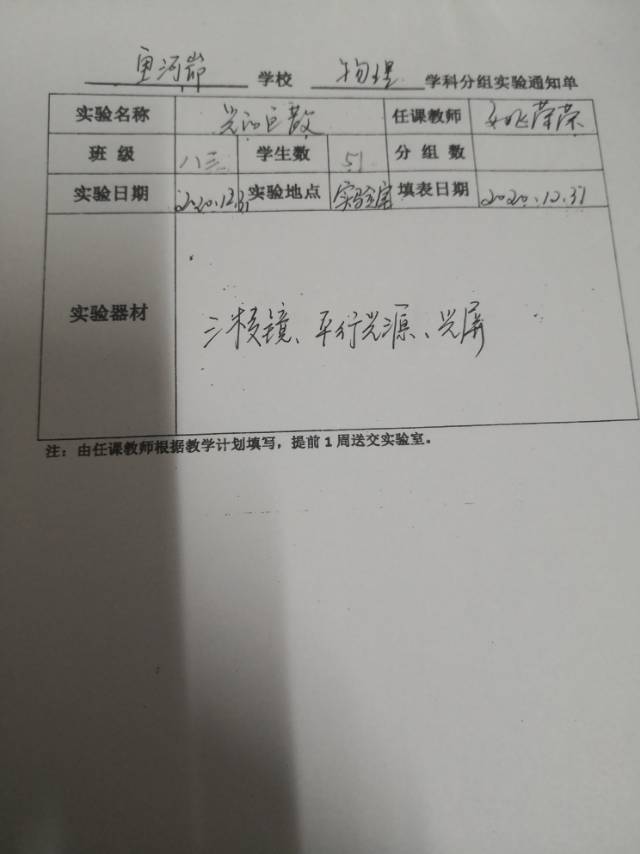 物理 学科分组实验通知单
学校
实验名称 光的色散 任课教师 荣荣
班级 八三 学生数 51 分组数
实验日期 2020.12.31 实验地点 实验室 填表日期 2020.12.31
实验器材 三棱镜、平行光源、光屏
注：由任课教师根据教学计划填写，提前1周送交实验室。